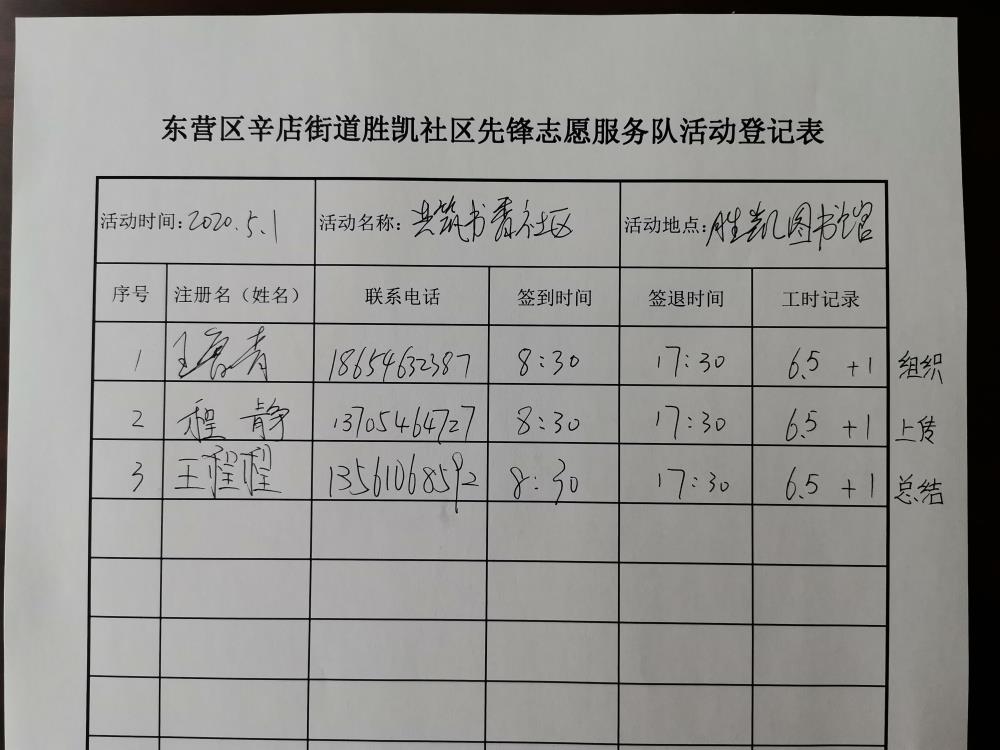 东营区辛店街道胜凯社区先锋志愿服务队活动登记表
活动时间:2020.5.1 活动名称:共筑书香社区 活动地点:胜凯图书馆
序号 注册名（姓名） 联系电话 签到时间 签退时间 工时记录
1 王 青 18654632387 8:30 17:30 6.5 +1 组织
2 程静 13705464727 8:30 17:30 6.5 +1 上传
3 王程程 13561068592 8:30 17:30 6.5 +1 总结